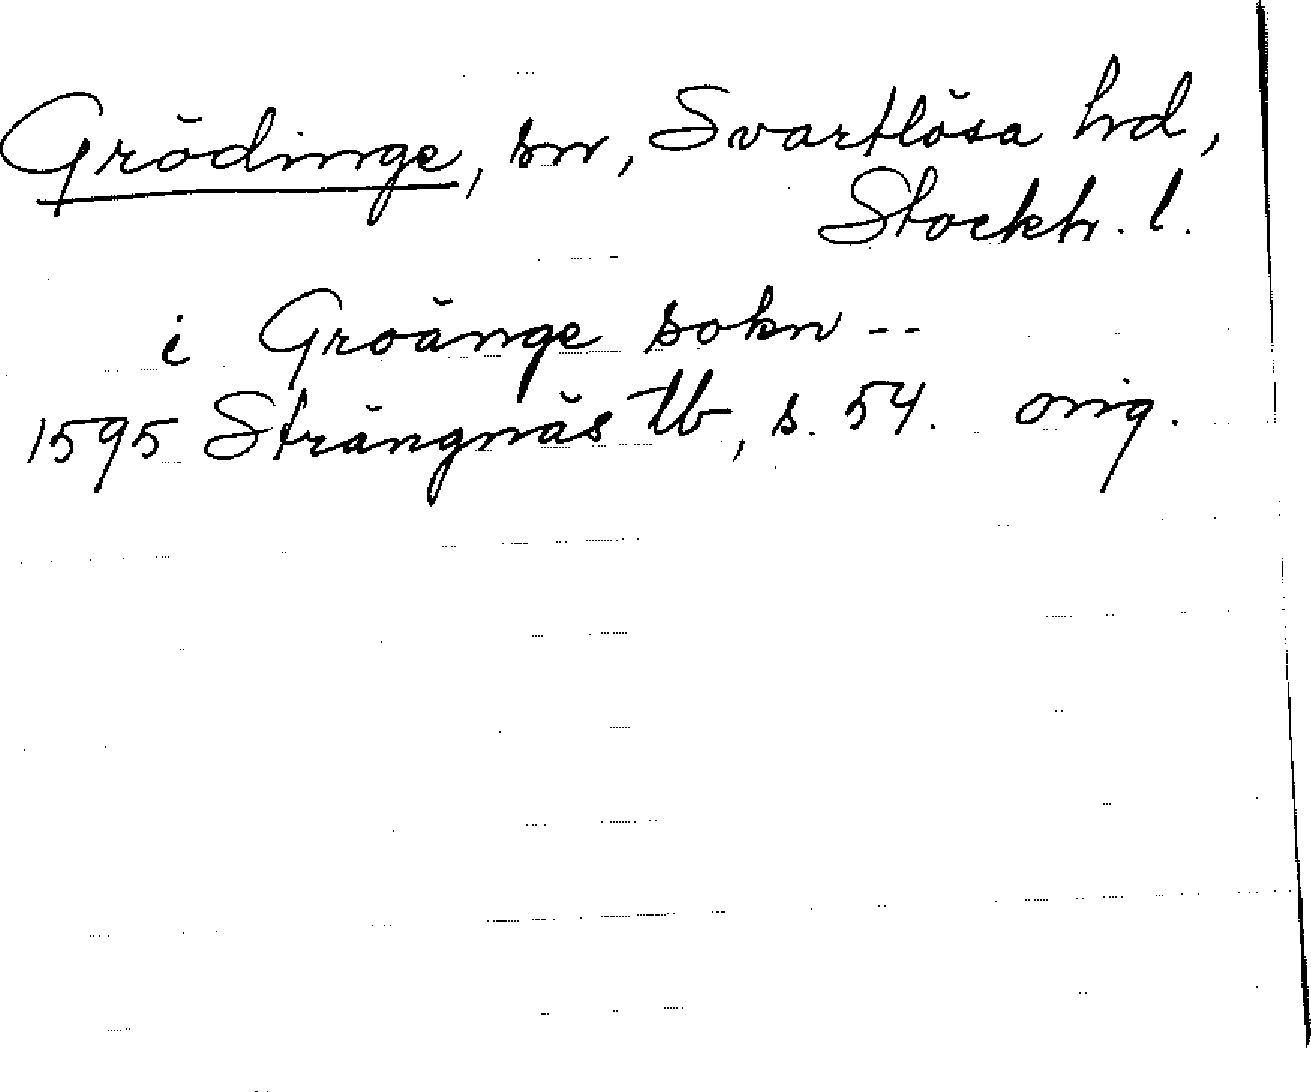 Grödinge, sn, Svartlösa hd,
Stockh. l.
i Groänge sokn --
1595 Strängnäs tb, s. 54. orig.